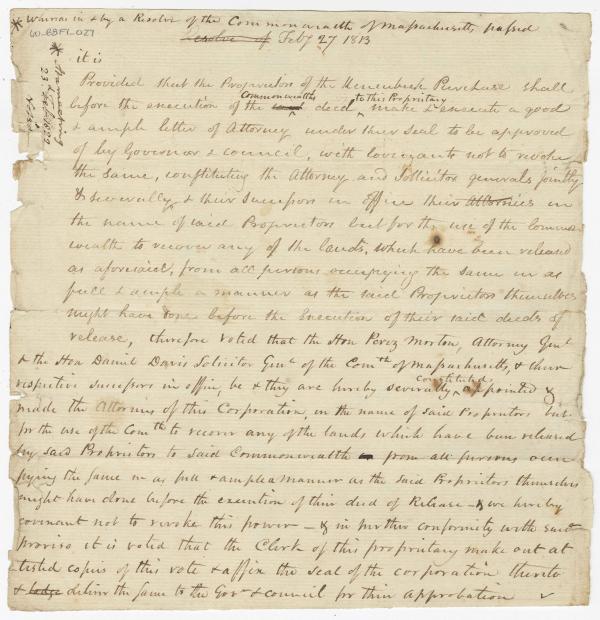 * Whereas in & by a Resolve of the Commonwealth of Massachusetts passed
Resolve of Feby 27 1813
60-BBF1-027
it is
Provided that the Proprietors of the Kennebeck Purchase shall
before the execution of the Commonwealths deed to this Proprietary make & execute a good
& ample letter of Attorney under their seal to be approved
of by Governor & council, with covenants not to revoke
the same, constituting the Attorney and Sollicitor generals jointly
& severally & their successors in office their Attornies in
the name of said Proprietors but for the use of the Common
wealth to recover any of the lands, which have been released
as aforesaid, from all persons occupying the same in as
full & ample a manner as the said Proprietors themselves
might have done before the Execution of their said deeds of
release, therefore voted that the Hon Perez Morton, Attorney Genl
& the Hon Daniel Davis Solicitor Genl of the Comth of Massachusetts, & their
respective successors in office, be & they are hereby severally constituted appointed &
made the Attornies of this Corporation, in the name of said Proprietors but
for the use of the Comth to recover any of the lands which have been released
by said Proprietors to said Commonwealth from all persons occu
pying the same in as full & ample a manner as the said Proprietors themselves
might have done before the execution of their deed of Release - & we hereby
covenant not to revoke this power - & in further conformity with said
proviso it is voted that the Clerk of this proprietary make out at
tested copies of this vote & affix the seal of the corporation thereto
& lodge deliver the same to the Govr & council for their Approbation